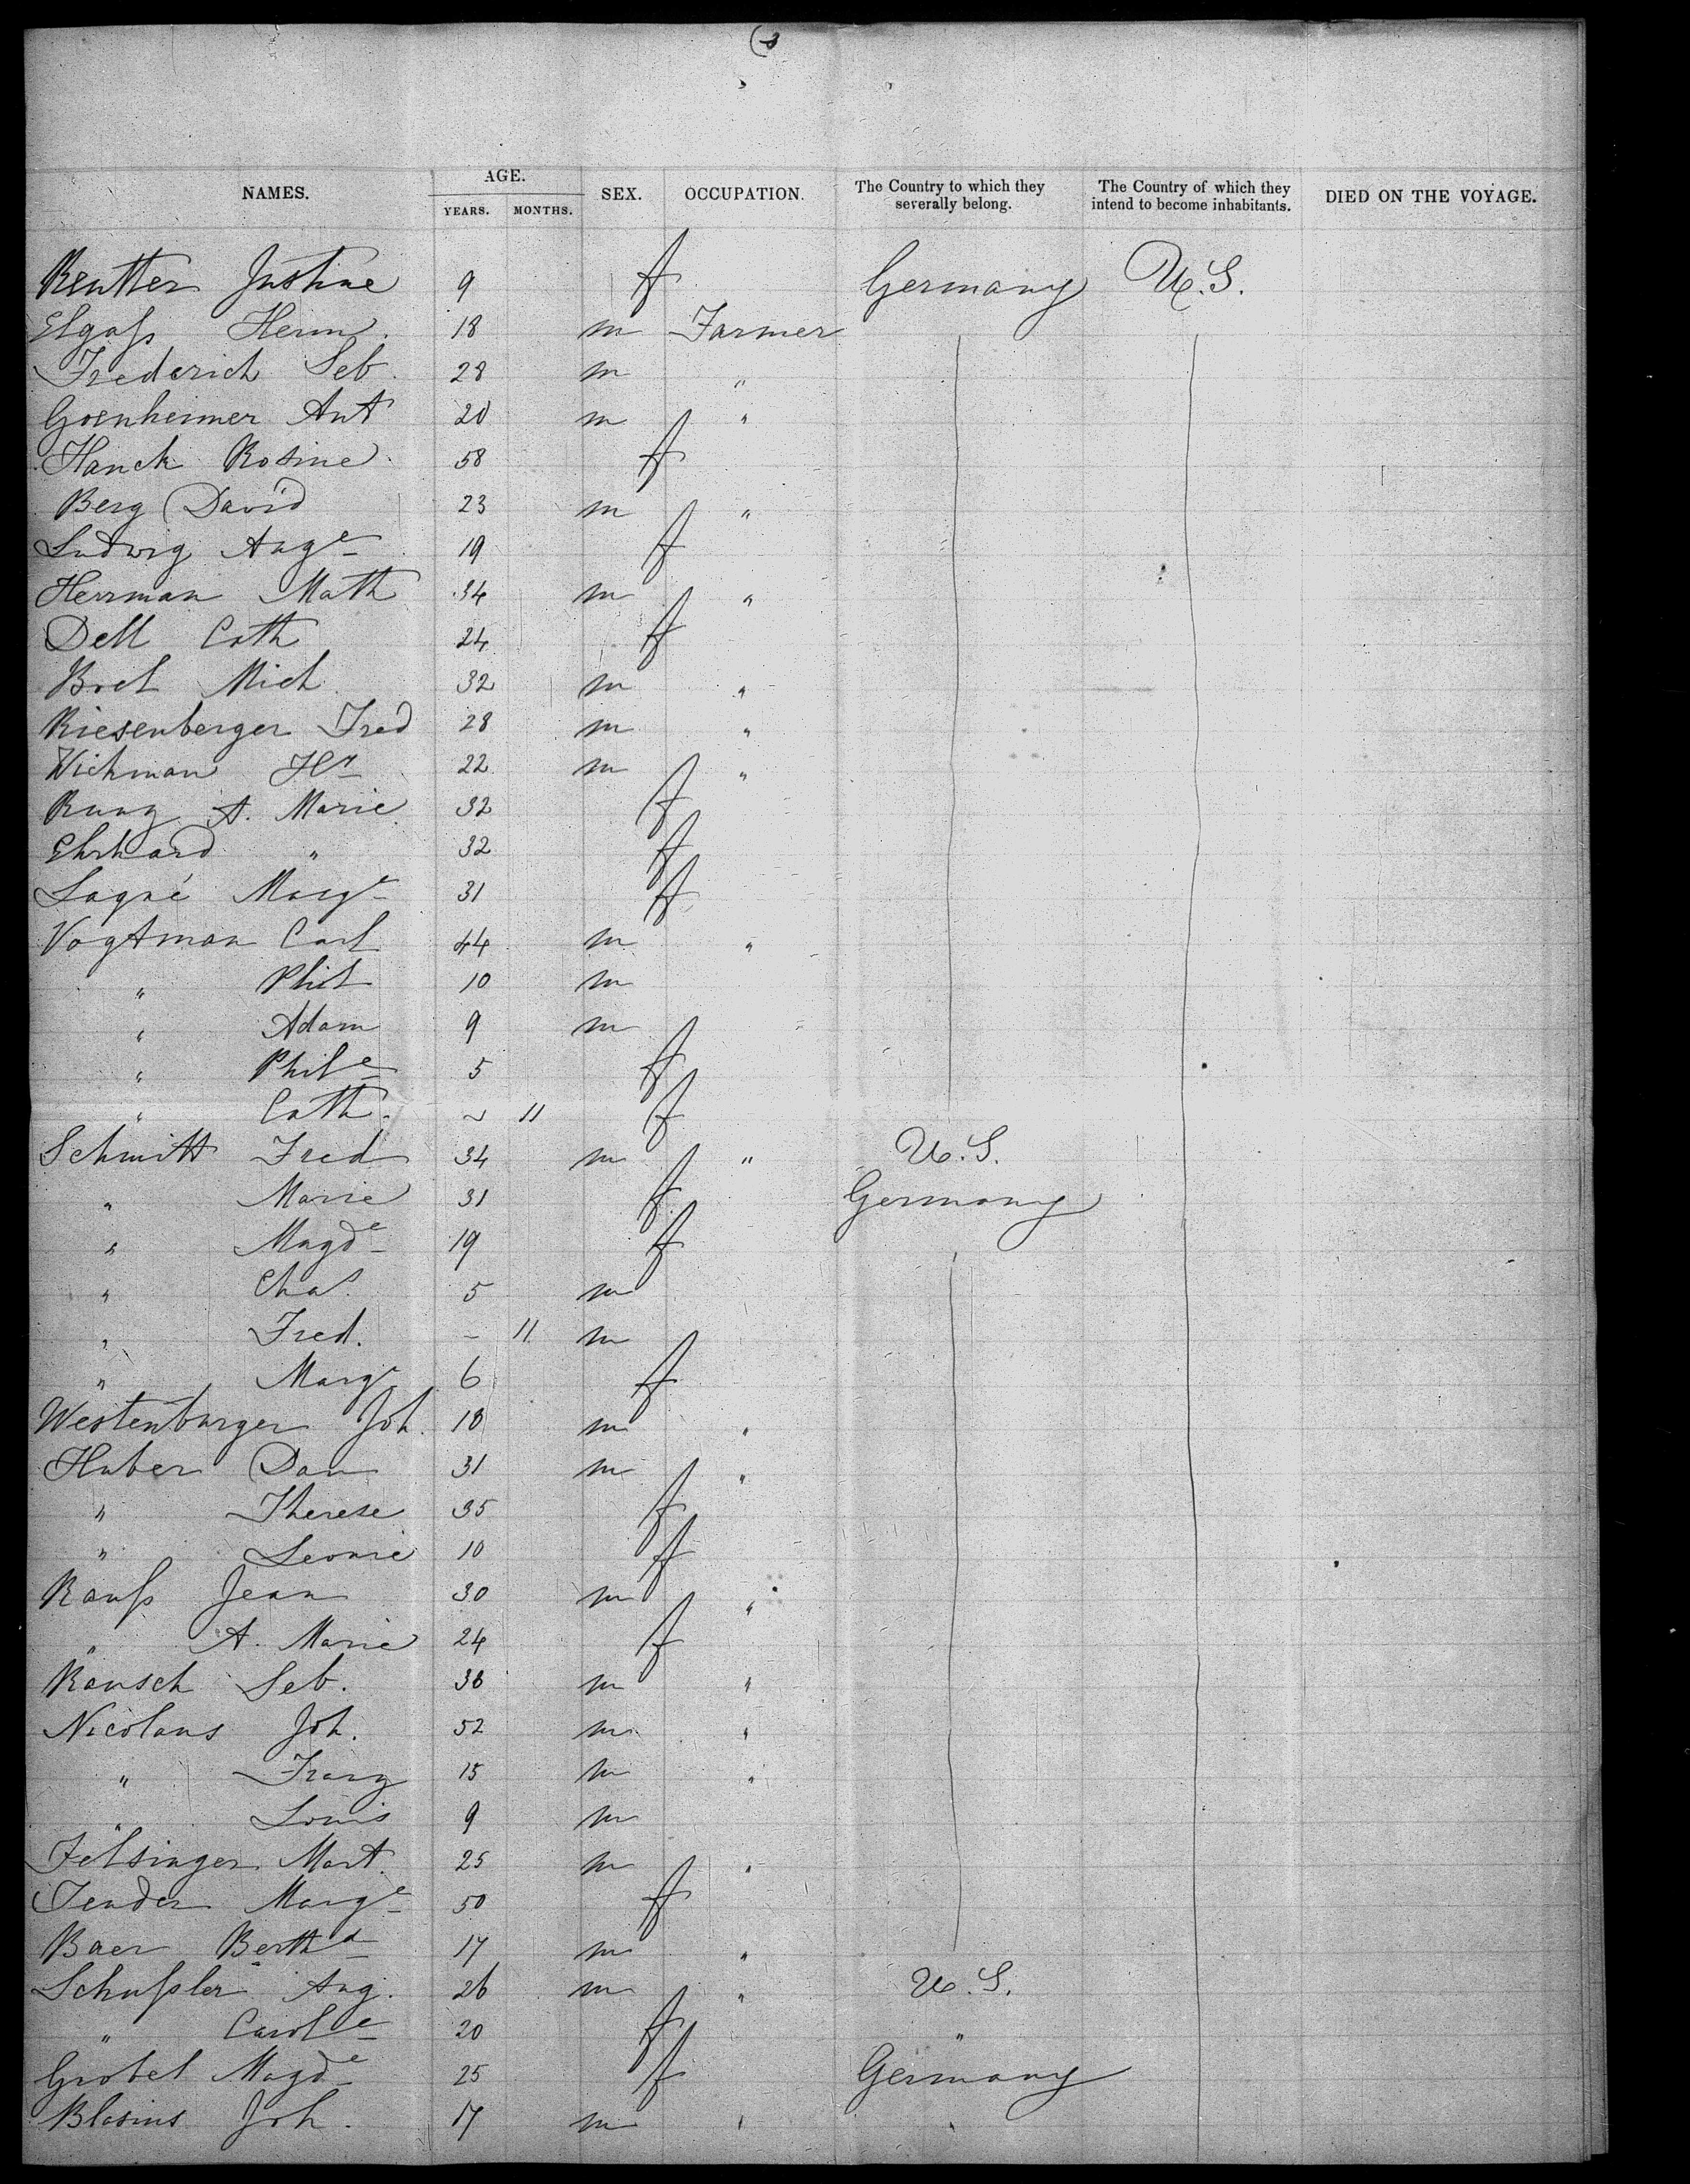 (3
NAMES. AGE. YEARS. MONTHS. SEX. OCCUPATION. The Country to which they severally belong. The Country of which they intend to become inhabitants. DIED ON THE VOYAGE.
Reutter Justine 9 f Germany U.S.
Elgaſs Herm. 18 m Farmer
Frederich Seb. 28 m "
Goenheimer Ant 20 m "
Hanck Rosine 58 f
Berg David 23 m "
Ludwig Auge 19 f
Herrman Math 34 m "
Dell Cath 24 f
Brel Mich 32 m "
Riesenberger Fred 28 m "
Wichman Hr 22 m "
Rung A. Marie 32 f
Ehrhard " 32 f
Lagné Marge 31 f
Vogtman Carl 44 m "
" Phil 10 m
" Adam 9 m
" Phile 5 f
" Cath. ~ 11 f
Schmitt Fred 34 m " U.S.
" Marie 31 f Germany
" Magde 19 f
" Chas. 5 m
" Fred. – 11 m
" Marge 6 f
Westenburger Joh. 18 m "
Huber Dan 31 m "
" Therese 35 f
" Leonie 10 f
Rauſs Jean 30 m "
" A. Marie 24 f
Rausch Seb. 36 m "
Nicolaus Joh. 52 m "
" Franz 15 m "
" Louis 9 m
Felsinger Mart. 25 m "
Fender Marge 50 f
Baer Bertha 17 m "
Schuſsler Aug. 26 m " U.S.
" Carole 20 f "
Grobel Magde 25 f Germany
Blasius Joh. 17 m " "